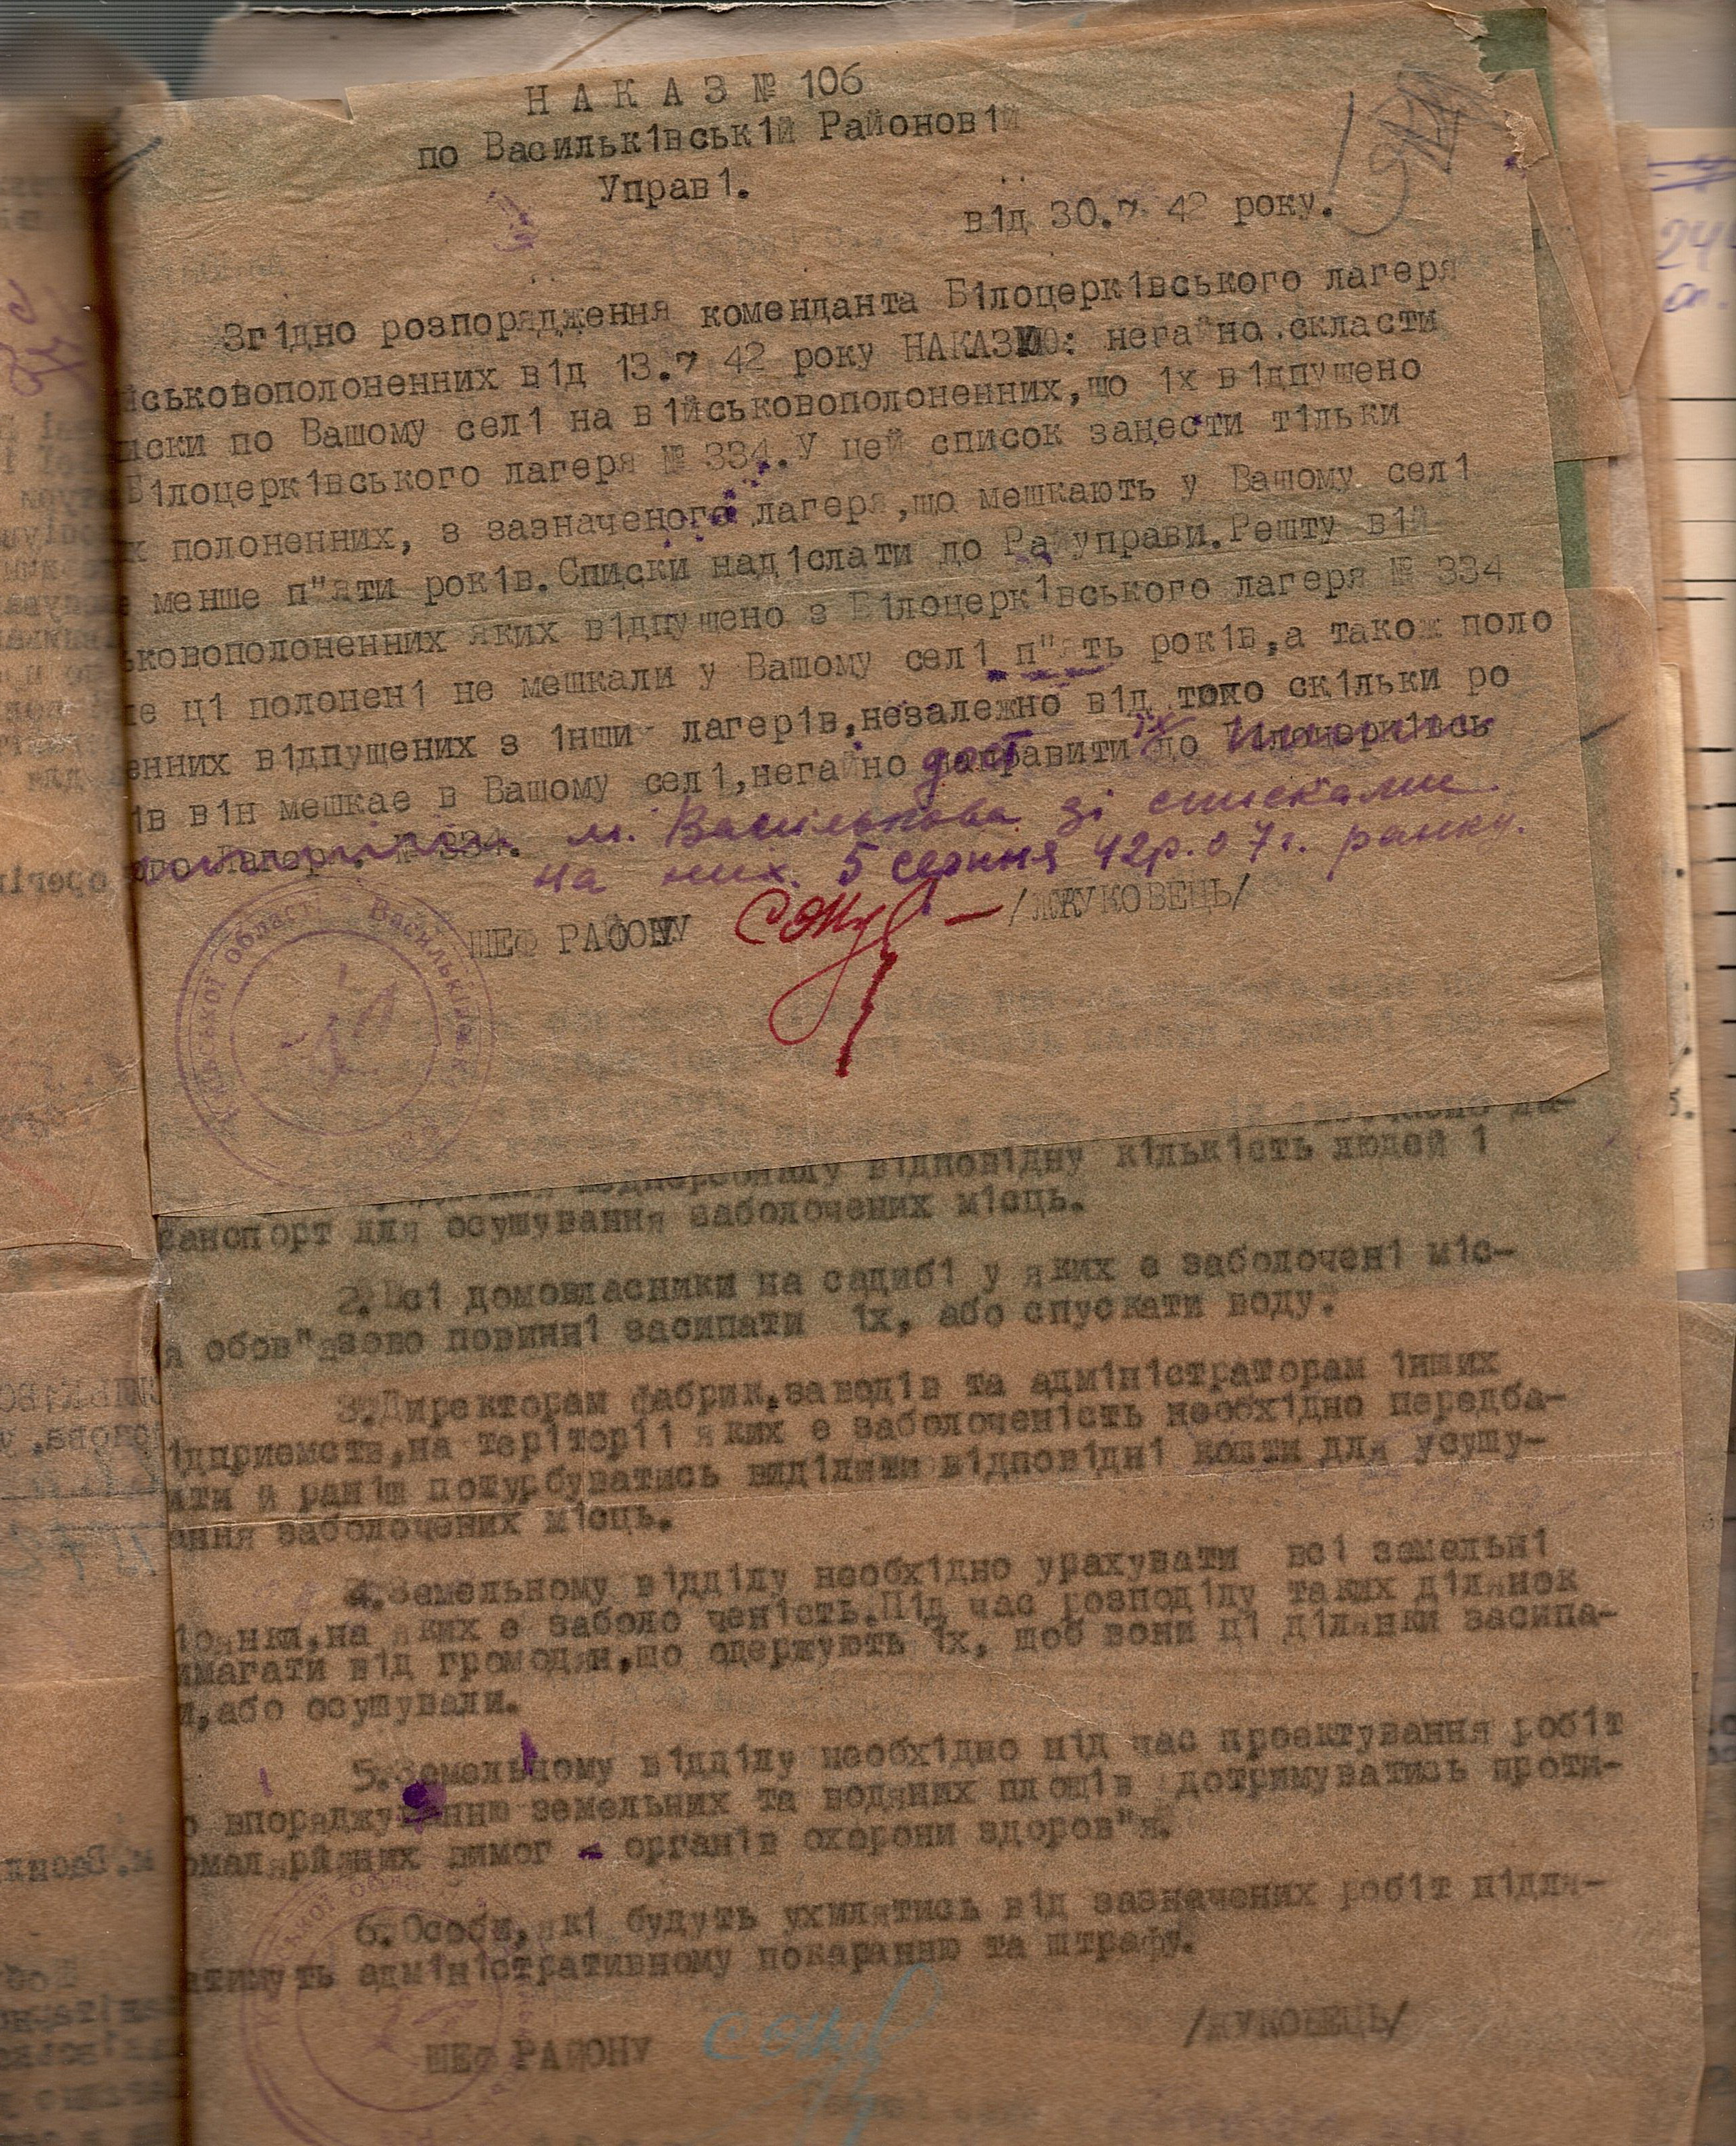 Н А К А З № 106
по Васильк1вськ1й Районов1й
Управ1.
в1д 30.7 42 року.
Зг1дно розпорядження коменданта Б1лоцерк1вського лагеря
йськовополоненних в1д 13.7 42 року НАКАЗУЮ: негайно скласти
иски по Вашому сел1 на в1йськовополоненних,що 1х в1дпушено
Б1лоцерк1вського лагеря № 334.У цей список занести т1льки
х полоненних, з зазначеного лагеря,що мешкають у Вашому сел1
е менше п"яти рок1в.Списки над1слати до Райуправи.Решту в1й
ськовополоненних яких в1дпушено з Б1лоцерк1вського лагеря № 334
ле ц1 полонен1 не мешкали у Вашому сел1 п"ять рок1в,а також поло
енних в1дпущених з 1нши лагер1в,незалежно в1д того ск1льки ро
1в в1н мешкае в Вашому сел1,негайно направити їх до Б1лоцерк1всь
ого Лагеря № 334. м. Василькова зі списками
на них. 5 серпня 42р. о 7 г. ранку.
ШЕФ РАЙОНУ /ЖУКОВЕЦЬ/
Київської області * Васильківська
в1дпов1дну к1льк1сть людей 1
ранспорт для осушування заболочених м1сць.
2.Вс1 домовласники на садиб1 у яких е заболочен1 м1с-
я обов"язово повинн1 засипати 1х, або спускати воду.
3.Директорам фабрик,завод1в та адм1н1страторам 1нших
1дприемств,на терітор11 яких е заболочен1сть необх1дно передба-
ити й ран1ш потурбуватись вид1лити в1дпов1дн1 кошти для усушу-
ання заболочених м1сць.
4.Земельному в1дд1лу необх1дно урахувати вс1 земельн1
1лянки,на яких е заболо чен1сть.П1д час розпод1лу таких д1лянок
имагати в1д громодян,що одержують 1х, щоб вони ц1 д1лянки засипа-
и,або осушували.
5.Земельному в1дд1лу необх1дно п1д час проектування роб1т
о впоряджуванню земельних та водяних площ1в дотримуватись проти-
омалярійних вимог - орган1в охорони здоров"я.
6.Особи,як1 будуть ухилятись в1д зазначених роб1т п1для-
атимуть адм1н1стративному покаранню та штрафу.
ШЕФ РАЙОНУ /ЖУКОВЕЦЬ/